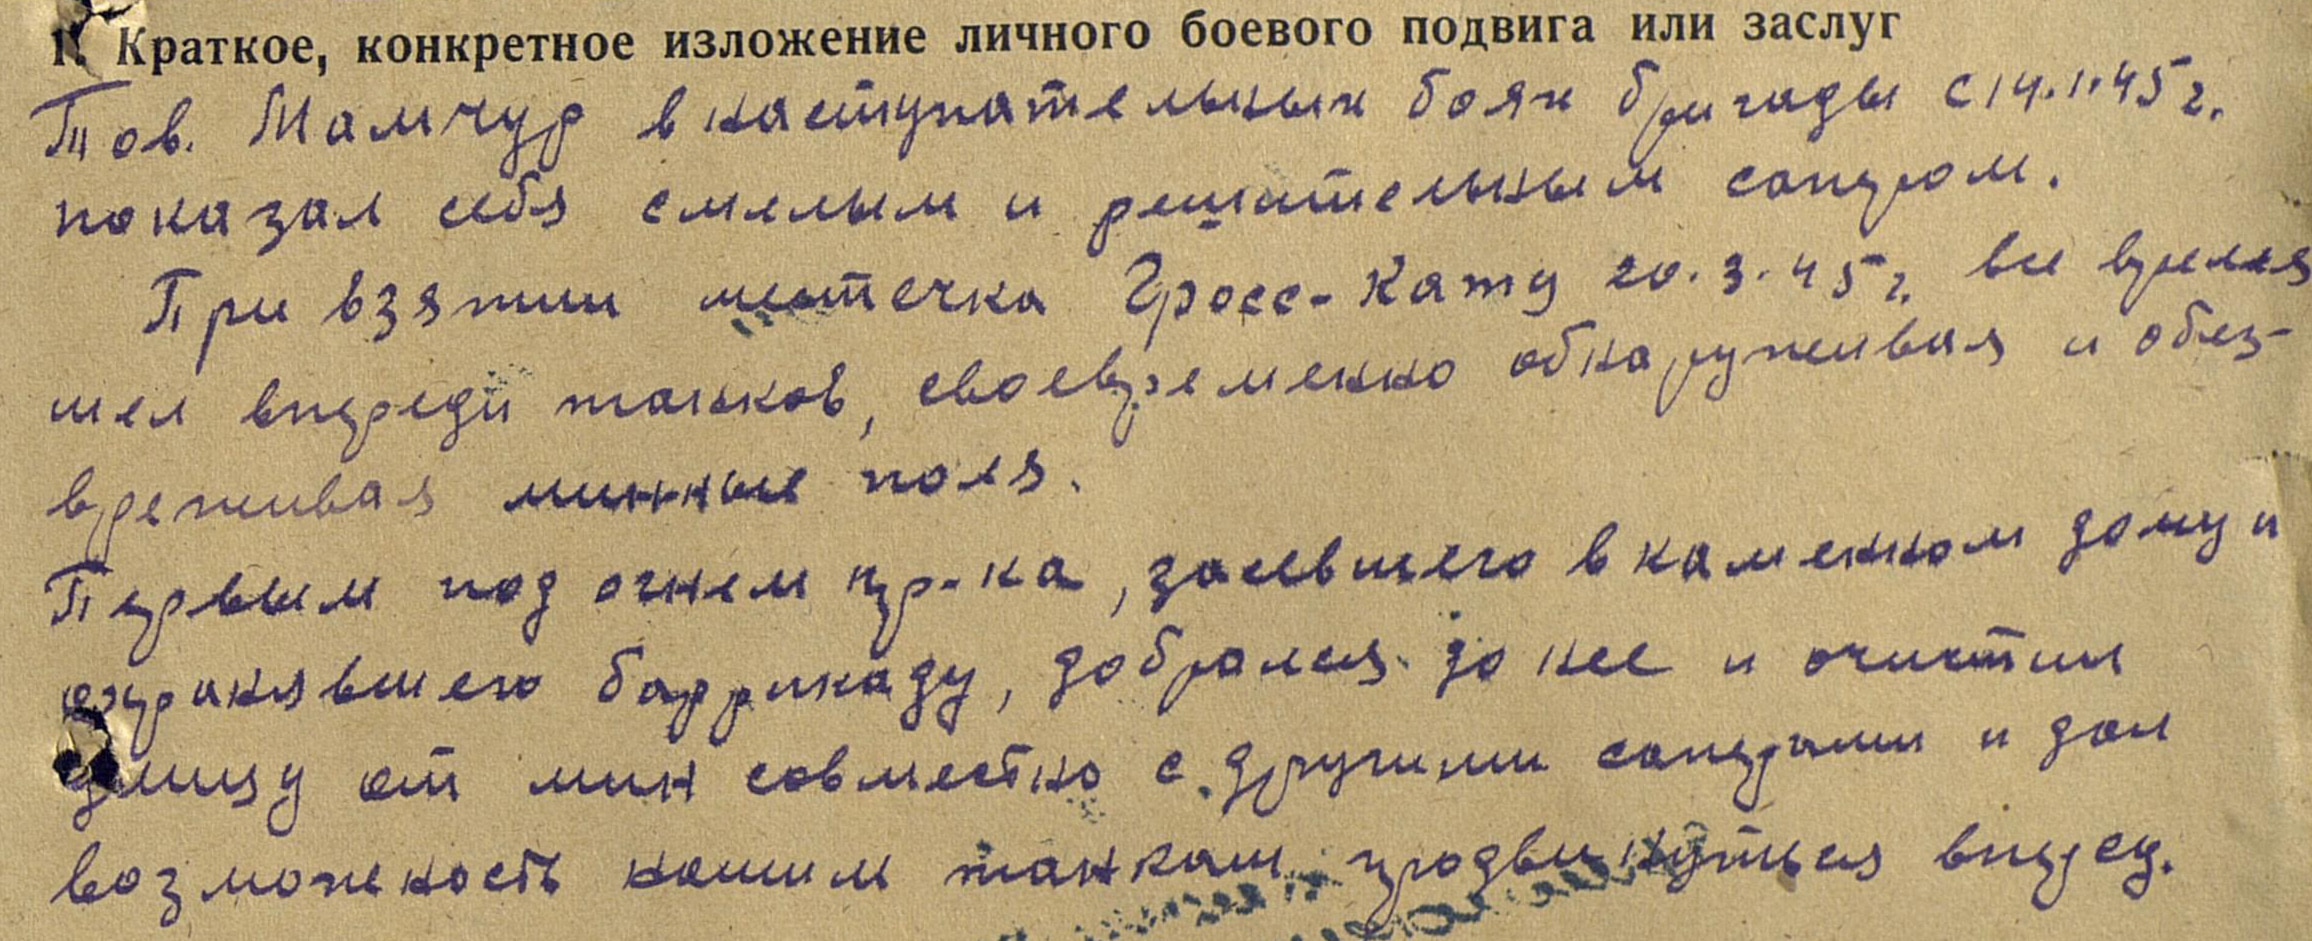 1. Краткое, конкретное изложение личного боевого подвига или заслуг
Тов. Мамчур в наступательных боях бригады с 14.1.45 г.
показал себя смелым и решительным сапером.
При взятии местечка Гросс-Катц 20.3.45 г. все время
шел впереди танков, своевременно обнаруживая и обез-
вреживая минные поля.
Первым под огнем пр-ка, засевшего в каменном дому и
охранявшего баррикаду, добрался до нее и очистил
улицу от мин совместно с другими саперами и дал
возможность нашим танкам продвинуться вперед.